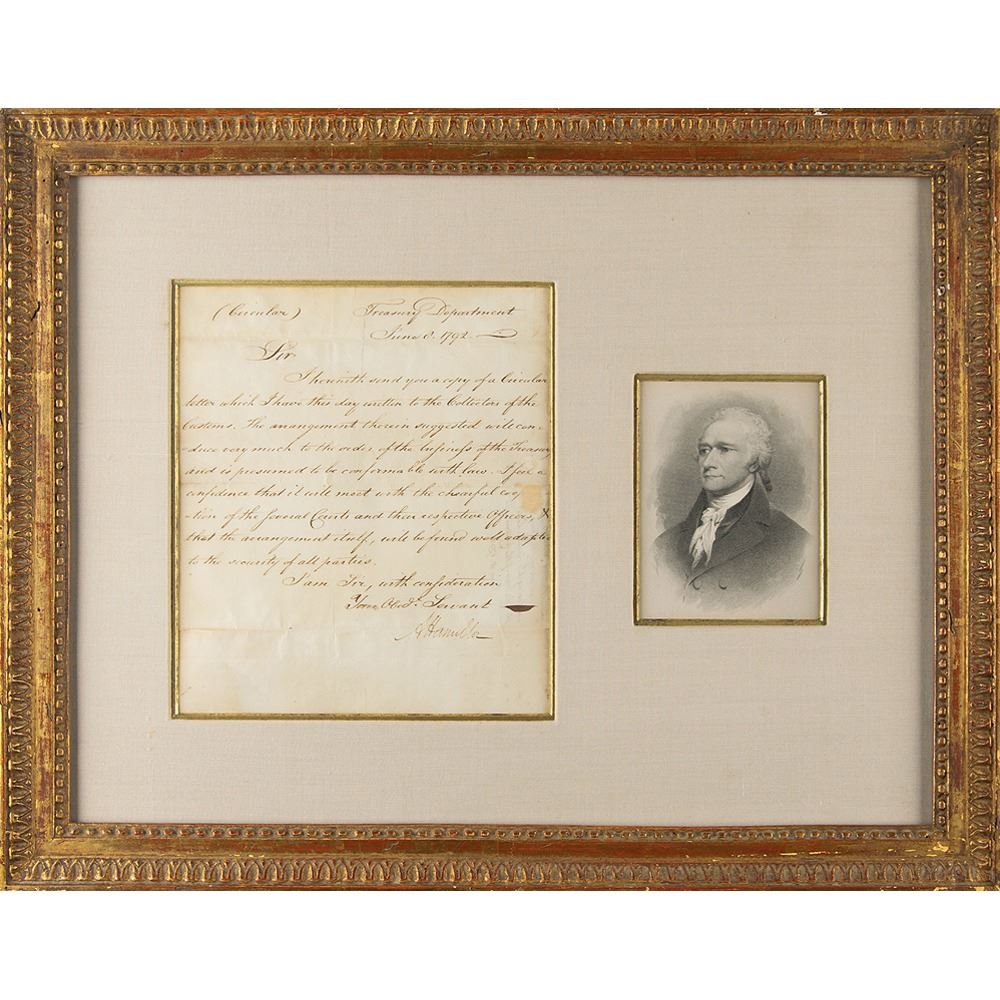 (Circular) Treasury Department
June 8. 1792.
Sir
I herewith send you a copy of a Circular
letter which I have this day written to the Collectors of the
Customs. The arrangement therein suggested will con-
duce very much to the order of the business of the Treasury
and is presumed to be conformable with law. I feel a
confidence that it will meet with the chearful coo
-tion of the several Courts and their respective Officers, &
that the arrangement itself, will be found well adapted
to the security of all parties.
I am Sir, with consideration
Your Obedt. Servant
A Hamilton